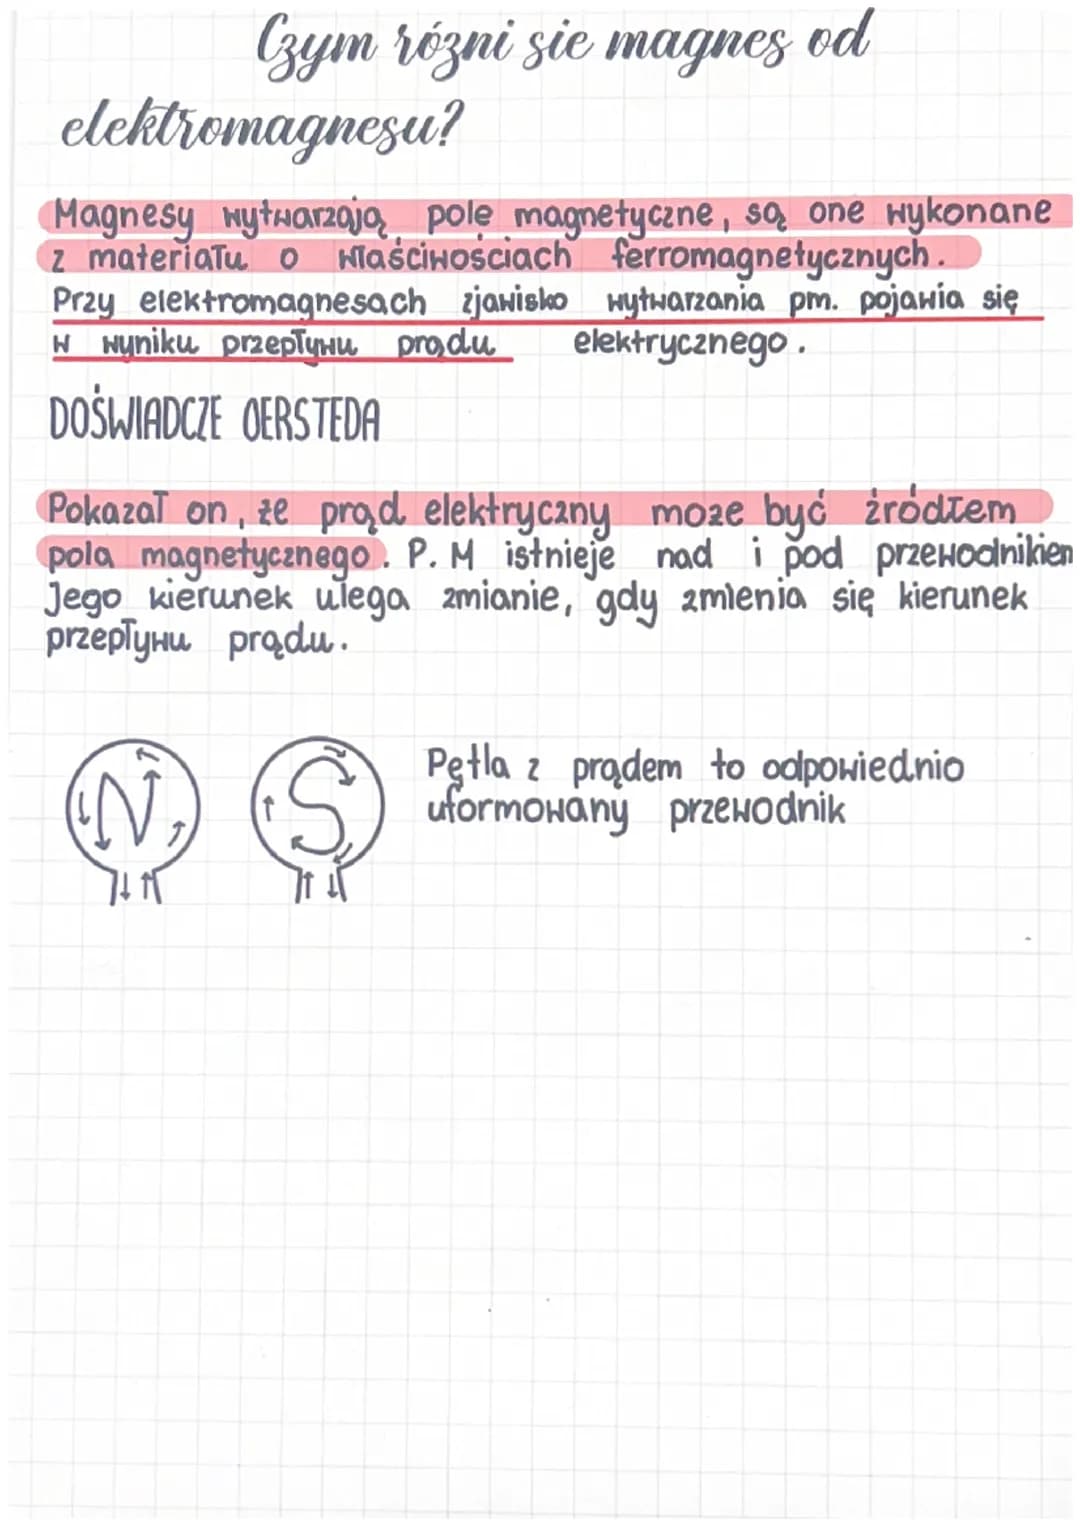 Czym rózni sie magnes od
elektromagnesu?
Magnesy wytwarzają pole magnetyczne, są one wykonane
z materiału o właściwościach ferromagnetycznych.
Przy elektromagnesach zjawisko wytwarzania pm. pojawia się
w wyniku przepływu prądu elektrycznego.
DOŚWIADCZE OERSTEDA
Pokazał on, że prąd elektryczny może być źródłem
pola magnetycznego. P. M istnieje nad i pod przewodnikiem
Jego kierunek ulega zmianie, gdy zmienia się kierunek
przepływu prądu.
N S
Pętla z prądem to odpowiednio
uformowany przewodnik